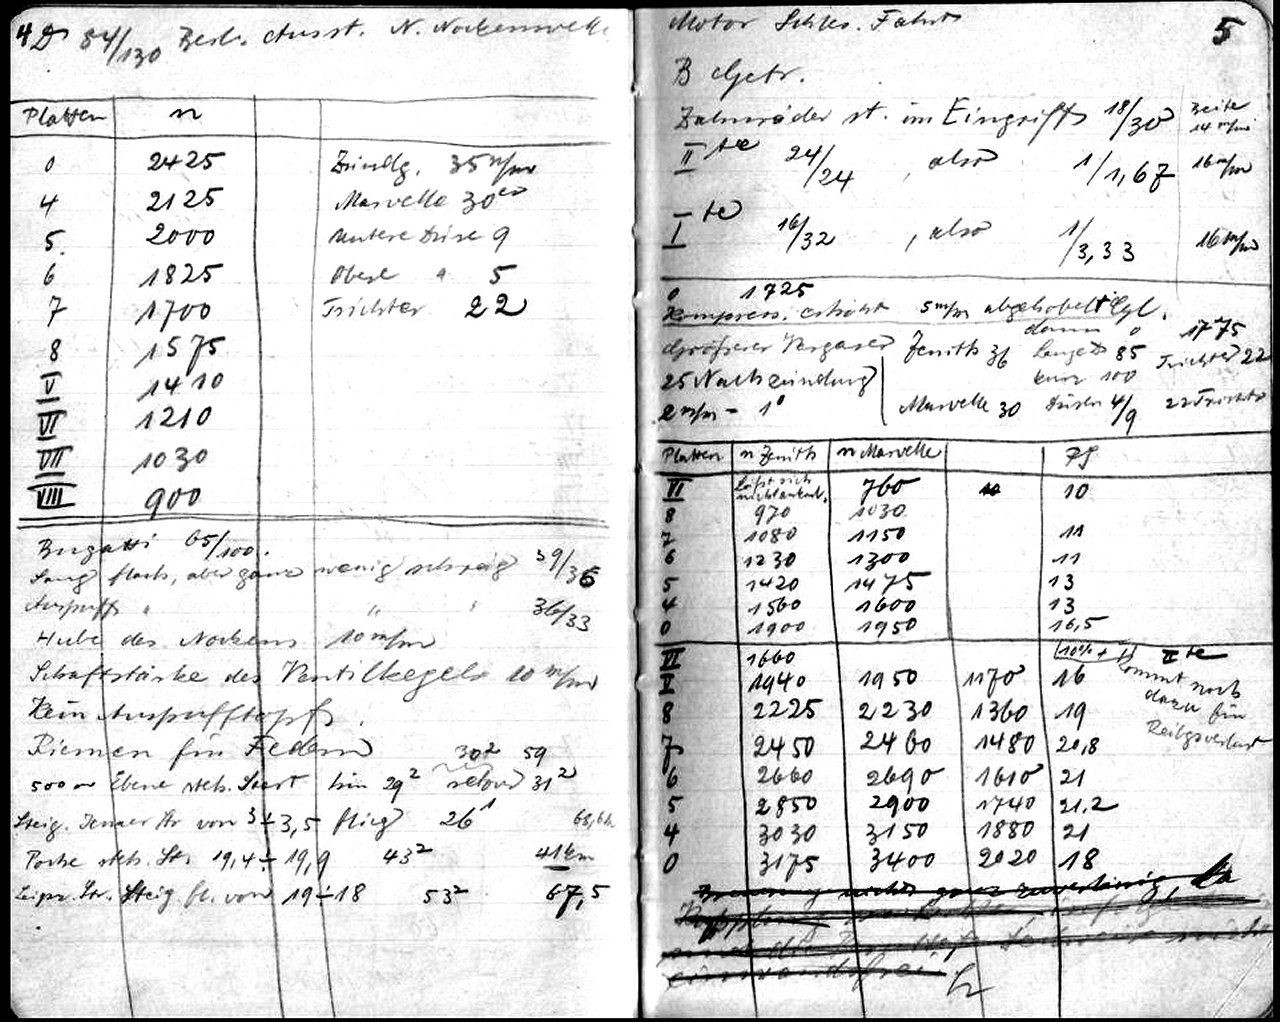 4 D 84/130 Berl. Ausst. N. Nockenwelle
Platten n
0 2425 Zündg. 35 m/m
4 2125 Marvelle 30
5 2000 untere Düse 9
6 1825 Obere " 5
7 1700 Trichter 22
8 1575
V 1410
VI 1210
VII 1030
VIII 900
Bugatti 65/100.
Saug flach, aber ganz wenig schräg 39/36
Auspuff " " " 36/33
Hube des Nockens 10 m/m
Schaftstärke des Ventilkegels 10 m/m
Kein Auspufftopf.
Riemen für Federn 30² 59
500 m Ebene steh. Start hin 29² retour 31²
Steig. Jenaer Str von 3 ÷ 3,5 flieg 26¹
steh. St. 19,4 ÷ 19,9 43² 41 km
Leipz. Str. Steig. fl. von 19 ÷ 18 53² 67,5
5
Motor Schles. Fahrt
B Getr.
Zahnräder st. im Eingriff 18/30 Breite 14 m/m
II te 24/24, also 1/1,67 16 m/m
I te 16/32, also 1/3,33 16 m/m
0 1725
Kompress. erhöht 5 m/m abgehobelt Cyl.
dann 0 1775
Grösserer Vergaser Zenith 36 lange 85 Trichter 22
kurz 100
25 Nachzündung
2 m/m = 1° Marvelle 30 Düsen 4/9 22 Trichter
Platten n Zenith n Marvelle PS
VI läßt sich nicht 760 10
8 970 1030
7 1080 1150 11
6 1230 1300 11
5 1420 1475 13
4 1560 1600 13
0 1900 1950 16,5
VI 1660 10% + II te
V 1940 1950 1170 16 kommt noch
8 2225 2230 1360 19 dazu für
7 2450 2460 1480 20,8 Reibgsverlust
6 2660 2690 1610 21
5 2850 2900 1740 21.2
4 3030 3150 1880 21
0 3175 3400 2020 18
nicht ganz zuverlässig, da
einwandsfrei